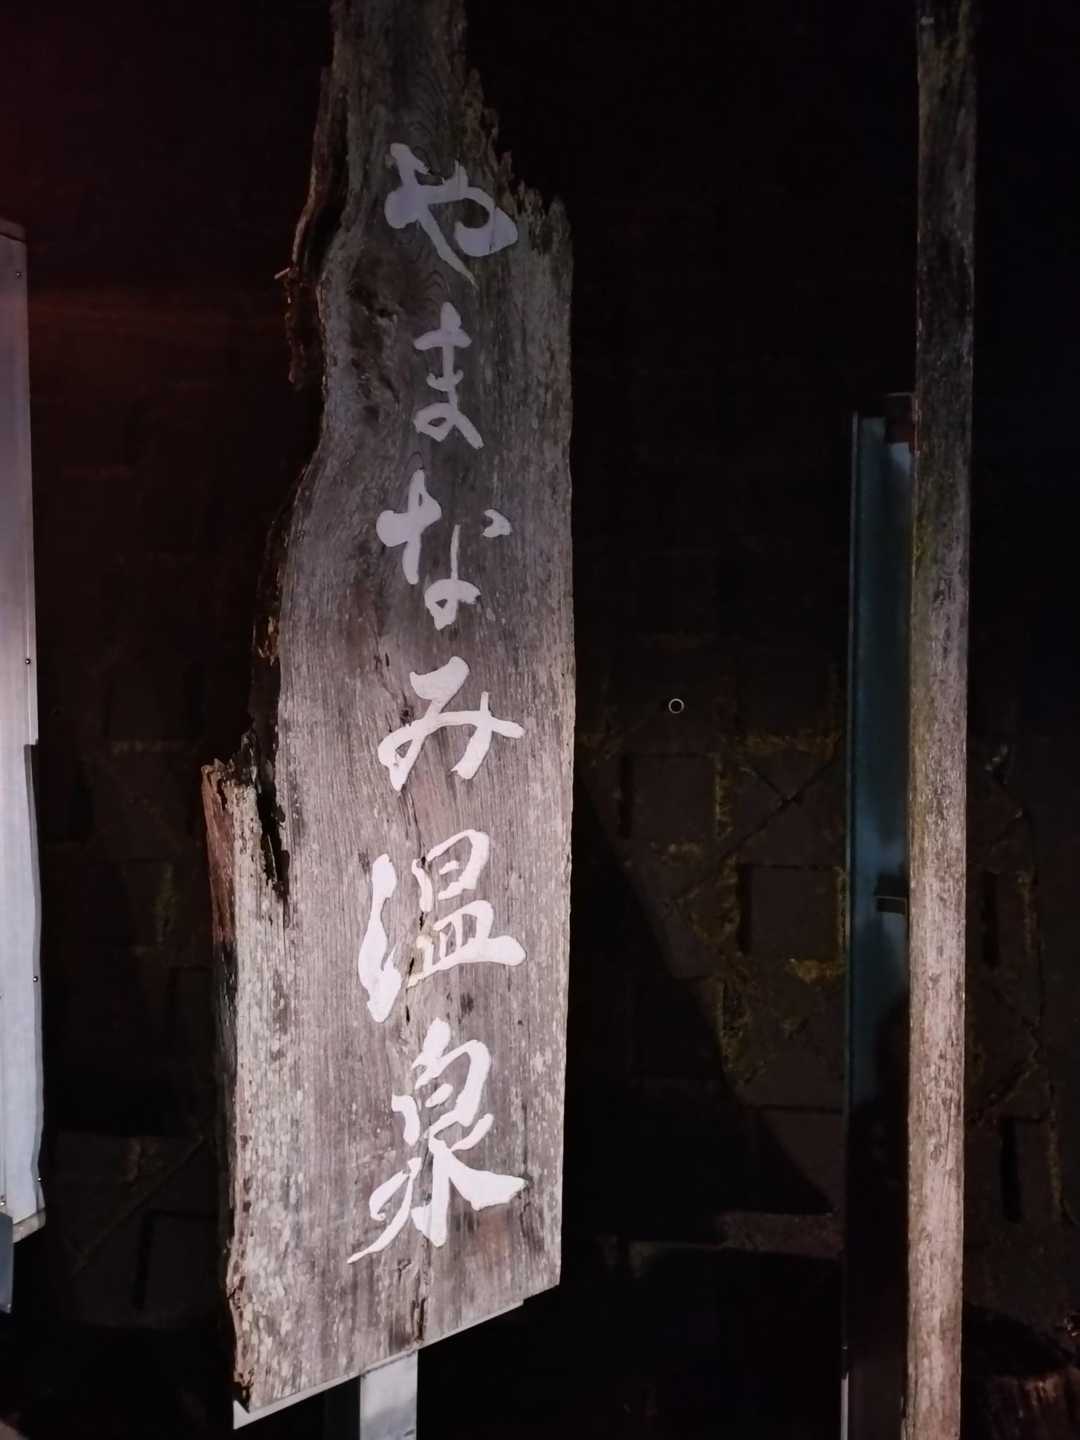 やまなみ温泉